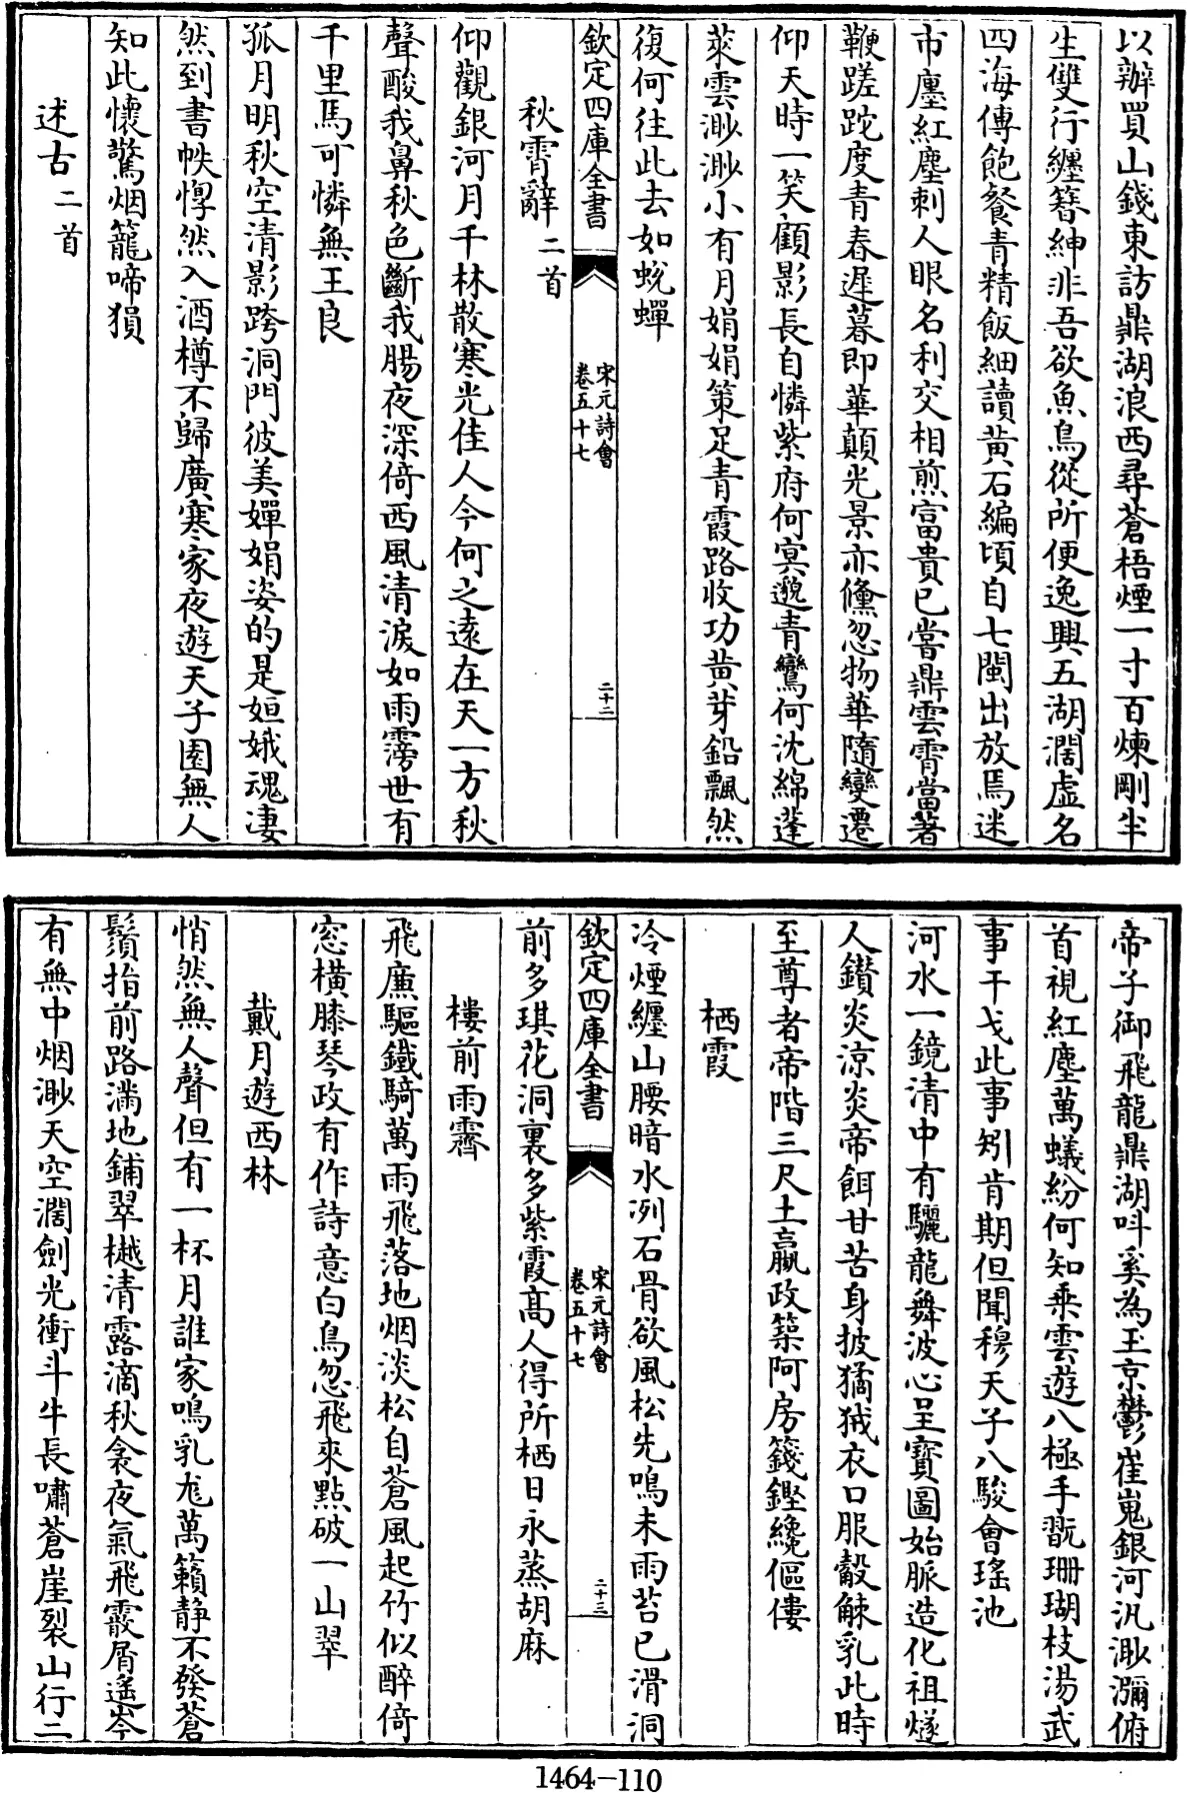 以辦買山錢東訪鼎湖浪西尋蒼梧煙一寸百煉剛半
生雙行纏簪紳非吾欲魚鳥從所便逸興五湖濶虛名
四海傳飽餐青精飯細讀黃石編頃自七閩出放焉迷
市廛紅塵刺人眼名利交相煎富貴已嘗鼎雲霄當著
鞭蹉跎度青春遲暮即華顛光景亦儵忽物華隨變遷
仰天時一笑顧影長自憐紫府何冥邈青鸞何沈綿蓬
萊雲渺渺小有月娟娟策足青霞路收功黃芽鉛飄然
復何往此去如蛻蟬
欽定四庫全書
宋元詩會
卷五十七
二十二
秋霄辭二首
仰觀銀河月千林散寒光佳人今何之遠在天一方秋
聲酸我鼻秋色斷我腸夜深倚西風清淚如雨霶世有
千里馬可憐無王良
孤月明秋空清影跨洞門彼美嬋娟姿的是姮娥魂凄
然到書帙惸然入酒樽不歸廣寒家夜遊天子園無人
知此懷驚烟籠啼猿
述古二首
帝子御飛龍鼎湖呌奚為玉京鬱崔嵬銀河汎渺瀰俯
首視紅塵萬蟻紛何知乘雲遊八極手翫珊瑚枝湯武
事干戈此事矧肯期但聞穆天子八駿會瑤池
河水一鏡清中有驪龍舞波心呈寶圖始脈造化祖燧
人鑽炎涼炎帝餌甘苦身披猺狨衣口服觳觫乳此時
至尊者帝階三尺土嬴政築阿房籛鏗纔傴僂
栖霞
冷煙纏山腰暗水冽石骨欲風松先鳴未雨苔已滑洞
欽定四庫全書
宋元詩會
卷五十七
二十三
前多琪花洞裏多紫霞高人得所栖日永蒸胡麻
樓前雨霽
飛廉驅鐵騎萬雨飛落地烟淡松自蒼風起竹似醉倚
窓橫膝琴政有作詩意白鳥忽飛來點破一山翠
戴月遊西林
悄然無人聲但有一杯月誰家鳴乳尨萬籟静不發蒼
鬚指前路滿地鋪翠樾清露滴秋衾夜氣飛霰屑遙岑
有無中烟渺天空濶劍光衝斗牛長嘯蒼崖裂山行二
1464-110